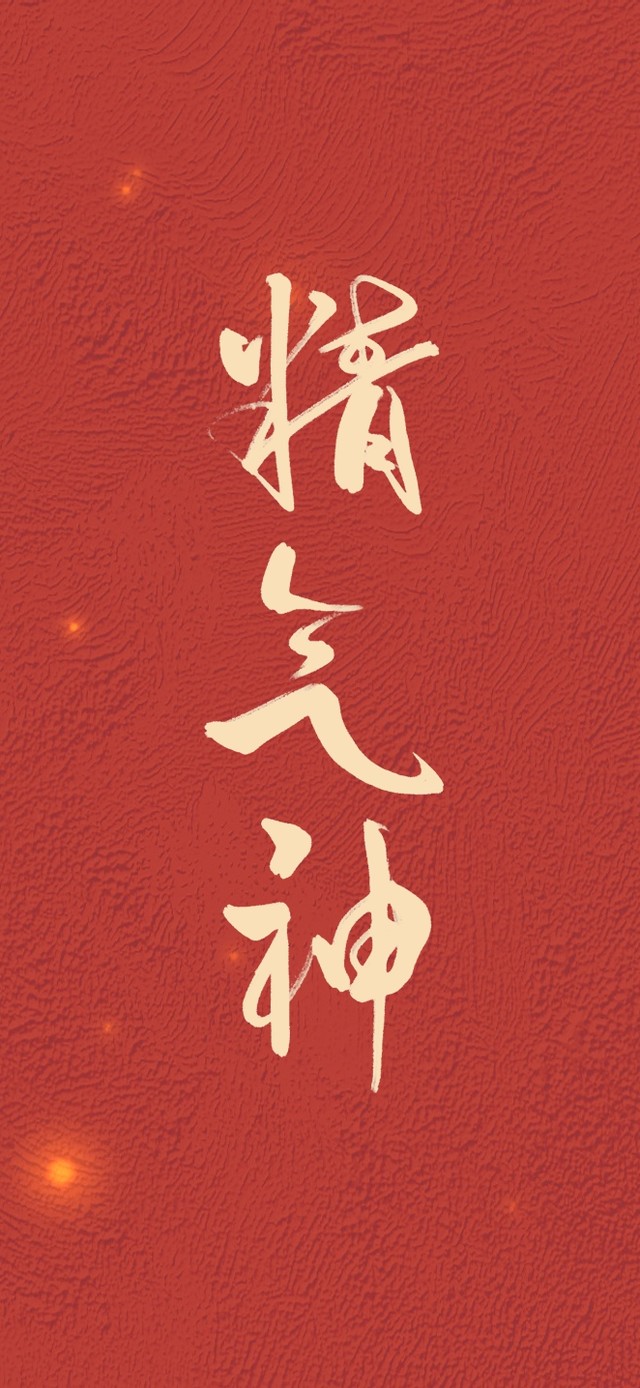 精气神